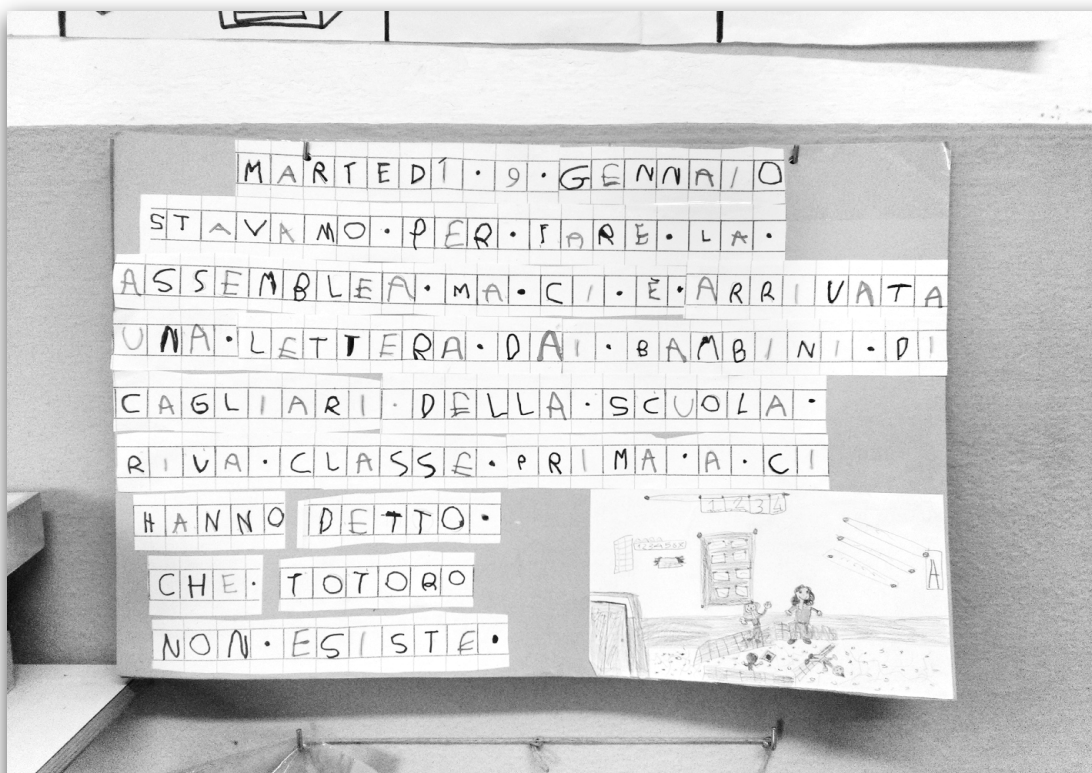 MARTEDÌ · 9 · GENNAIO
STAVAMO · PER · FARE · LA ·
ASSEMBLEA · MA · CI · È · ARRIVATA
UNA · LETTERA · DAI · BAMBINI · DI
CAGLIARI · DELLA · SCUOLA ·
RIVA · CLASSE · PRIMA · A · CI
HANNO DETTO ·
CHE · TOTORO
NON · ESISTE ·
1 2 3 4
A